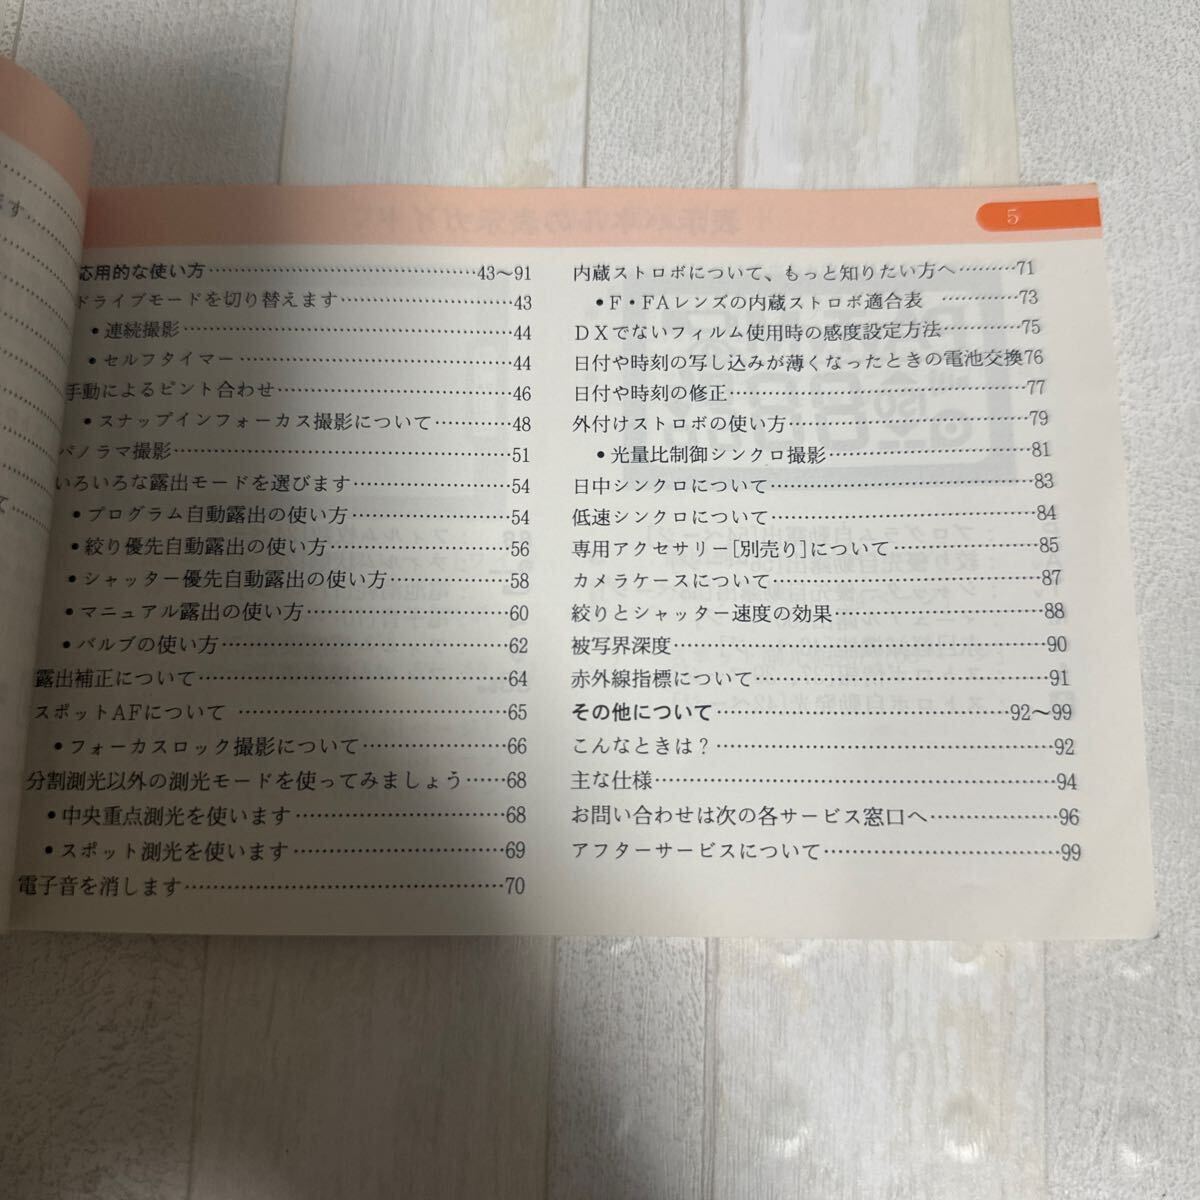 5
応用的な使い方……………………………43〜91
ドライブモードを切り替えます…………………43
•連続撮影……………………………………44
•セルフタイマー……………………………44
手動によるピント合わせ…………………………46
•スナップインフォーカス撮影について…………48
パノラマ撮影……………………………………51
いろいろな露出モードを選びます………………54
•プログラム自動露出の使い方………………54
•絞り優先自動露出の使い方…………………56
•シャッター優先自動露出の使い方……………58
•マニュアル露出の使い方……………………60
•バルブの使い方………………………………62
露出補正について………………………………64
スポットAFについて……………………………65
•フォーカスロック撮影について………………66
分割測光以外の測光モードを使ってみましょう……68
•中央重点測光を使います……………………68
•スポット測光を使います……………………69
電子音を消します………………………………70
内蔵ストロボについて、もっと知りたい方へ………71
•F・FAレンズの内蔵ストロボ適合表…………73
DXでないフィルム使用時の感度設定方法…………75
日付や時刻の写し込みが薄くなったときの電池交換76
日付や時刻の修正………………………………77
外付けストロボの使い方…………………………79
•光量比制御シンクロ撮影……………………81
日中シンクロについて……………………………83
低速シンクロについて……………………………84
専用アクセサリー[別売り]について………………85
カメラケースについて……………………………87
絞りとシャッター速度の効果……………………88
被写界深度………………………………………90
赤外線指標について……………………………91
その他について………………………………92〜99
こんなときは？…………………………………92
主な仕様…………………………………………94
お問い合わせは次の各サービス窓口へ……………96
アフターサービスについて………………………99